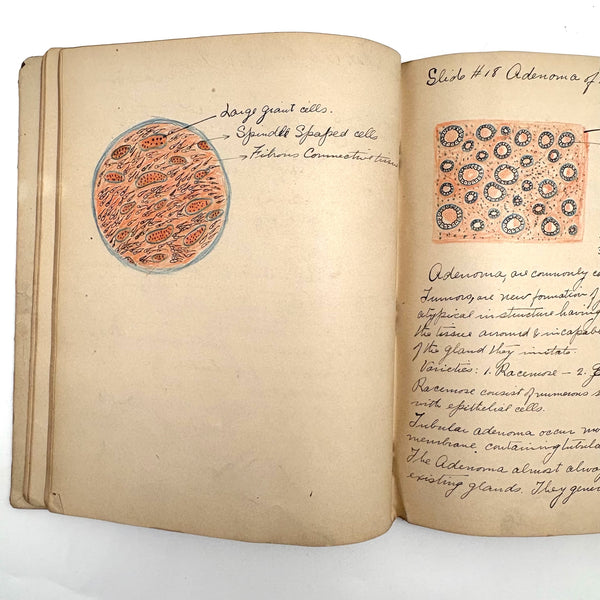 Large giant cells.
Spindle Spaped cells
Fibrous Connective tissue
Slide #18 Adenoma of
Adenoma, are commonly
Tumors, are new formation of
atypical in structure having
the tissue around & incapab
of the gland they imitate.
Varieties: 1. Racemose – 2.
Racemose consist of numerous
with epithelial cells.
Tubular adenoma occur
membrane, containing tubula
The Adenoma almost alwa
existing glands. They gener